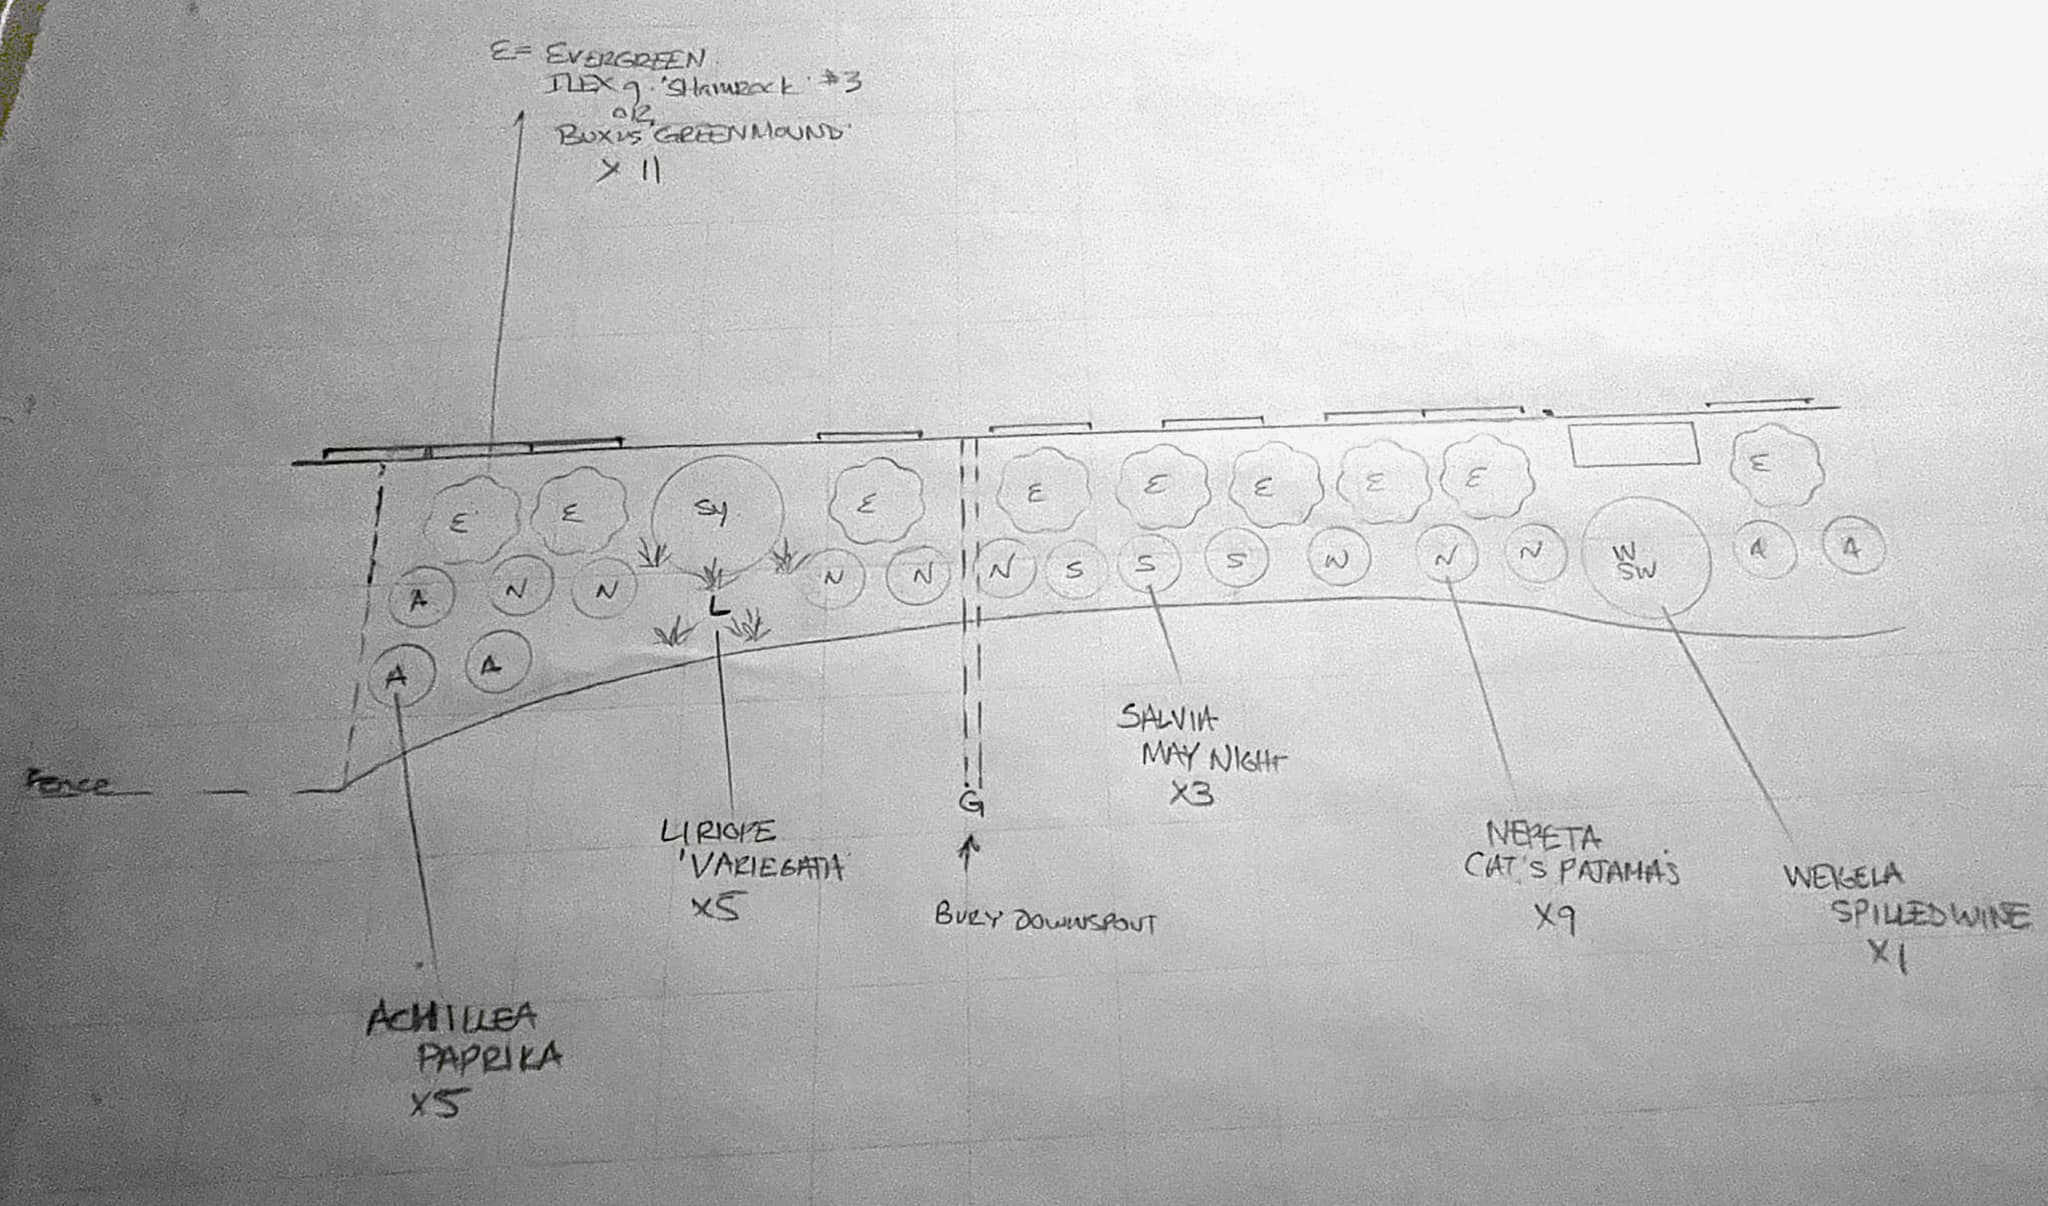 E= EVERGREEN
ILEX g. 'SHAMROCK' #3
OR
BUXUS 'GREEN MOUND'
X 11
E E SY E E E E E E E
A N N L N N N S S S N N N W SW A A
A A
Fence
G
BURY DOWNSPOUT
SALVIA
MAY NIGHT
X3
LIRIOPE
'VARIEGATA'
X5
NEPETA
CAT'S PAJAMA'S
X9
WEIGELA
SPILLED WINE
X1
ACHILLEA
PAPRIKA
X5